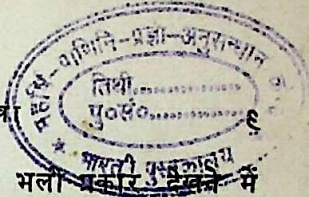 महर्षि-पाणिनि-प्रज्ञा-अनुसन्धान
तिथी..............
पु०सं०..............
९
* भारती पुस्तकालय *
भली प्रकार देखने में